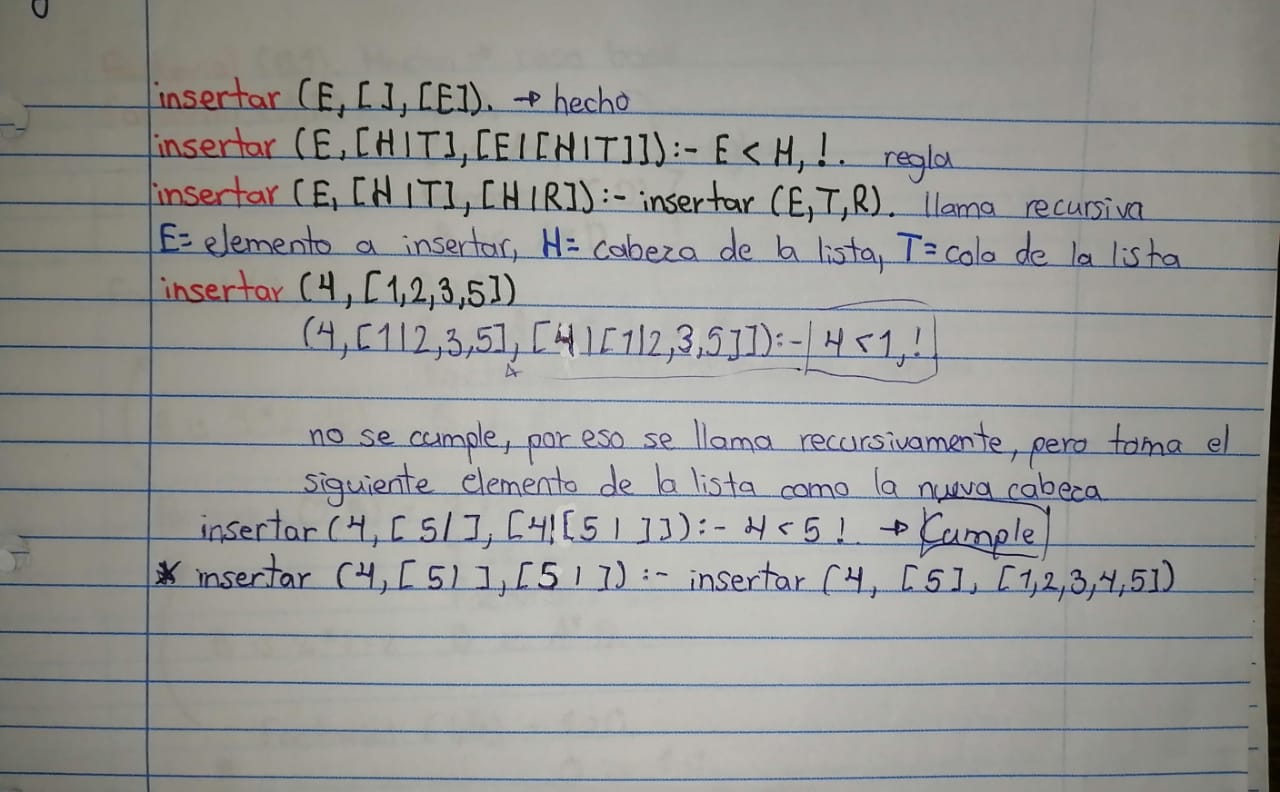 insertar (E, [ ], [E]). → hecho
insertar (E, [H|T], [E|[H|T]]):- E < H, !. regla
insertar (E, [H|T], [H|R]):- insertar (E,T,R). llama recursiva
E= elemento a insertar, H= cabeza de la lista, T= cola de la lista
insertar (4, [1,2,3,5])
(4, [1|2,3,5], [4|[1|2,3,5]]):- 4 < 1, !
no se cumple, por eso se llama recursivamente, pero toma el
siguiente elemento de la lista como la nueva cabeca
insertar (4, [5|], [4|[5|]]):- 4 < 5 ! → Cumple
* insertar (4, [5|], [5|]) :- insertar (4, [5], [1,2,3,4,5])